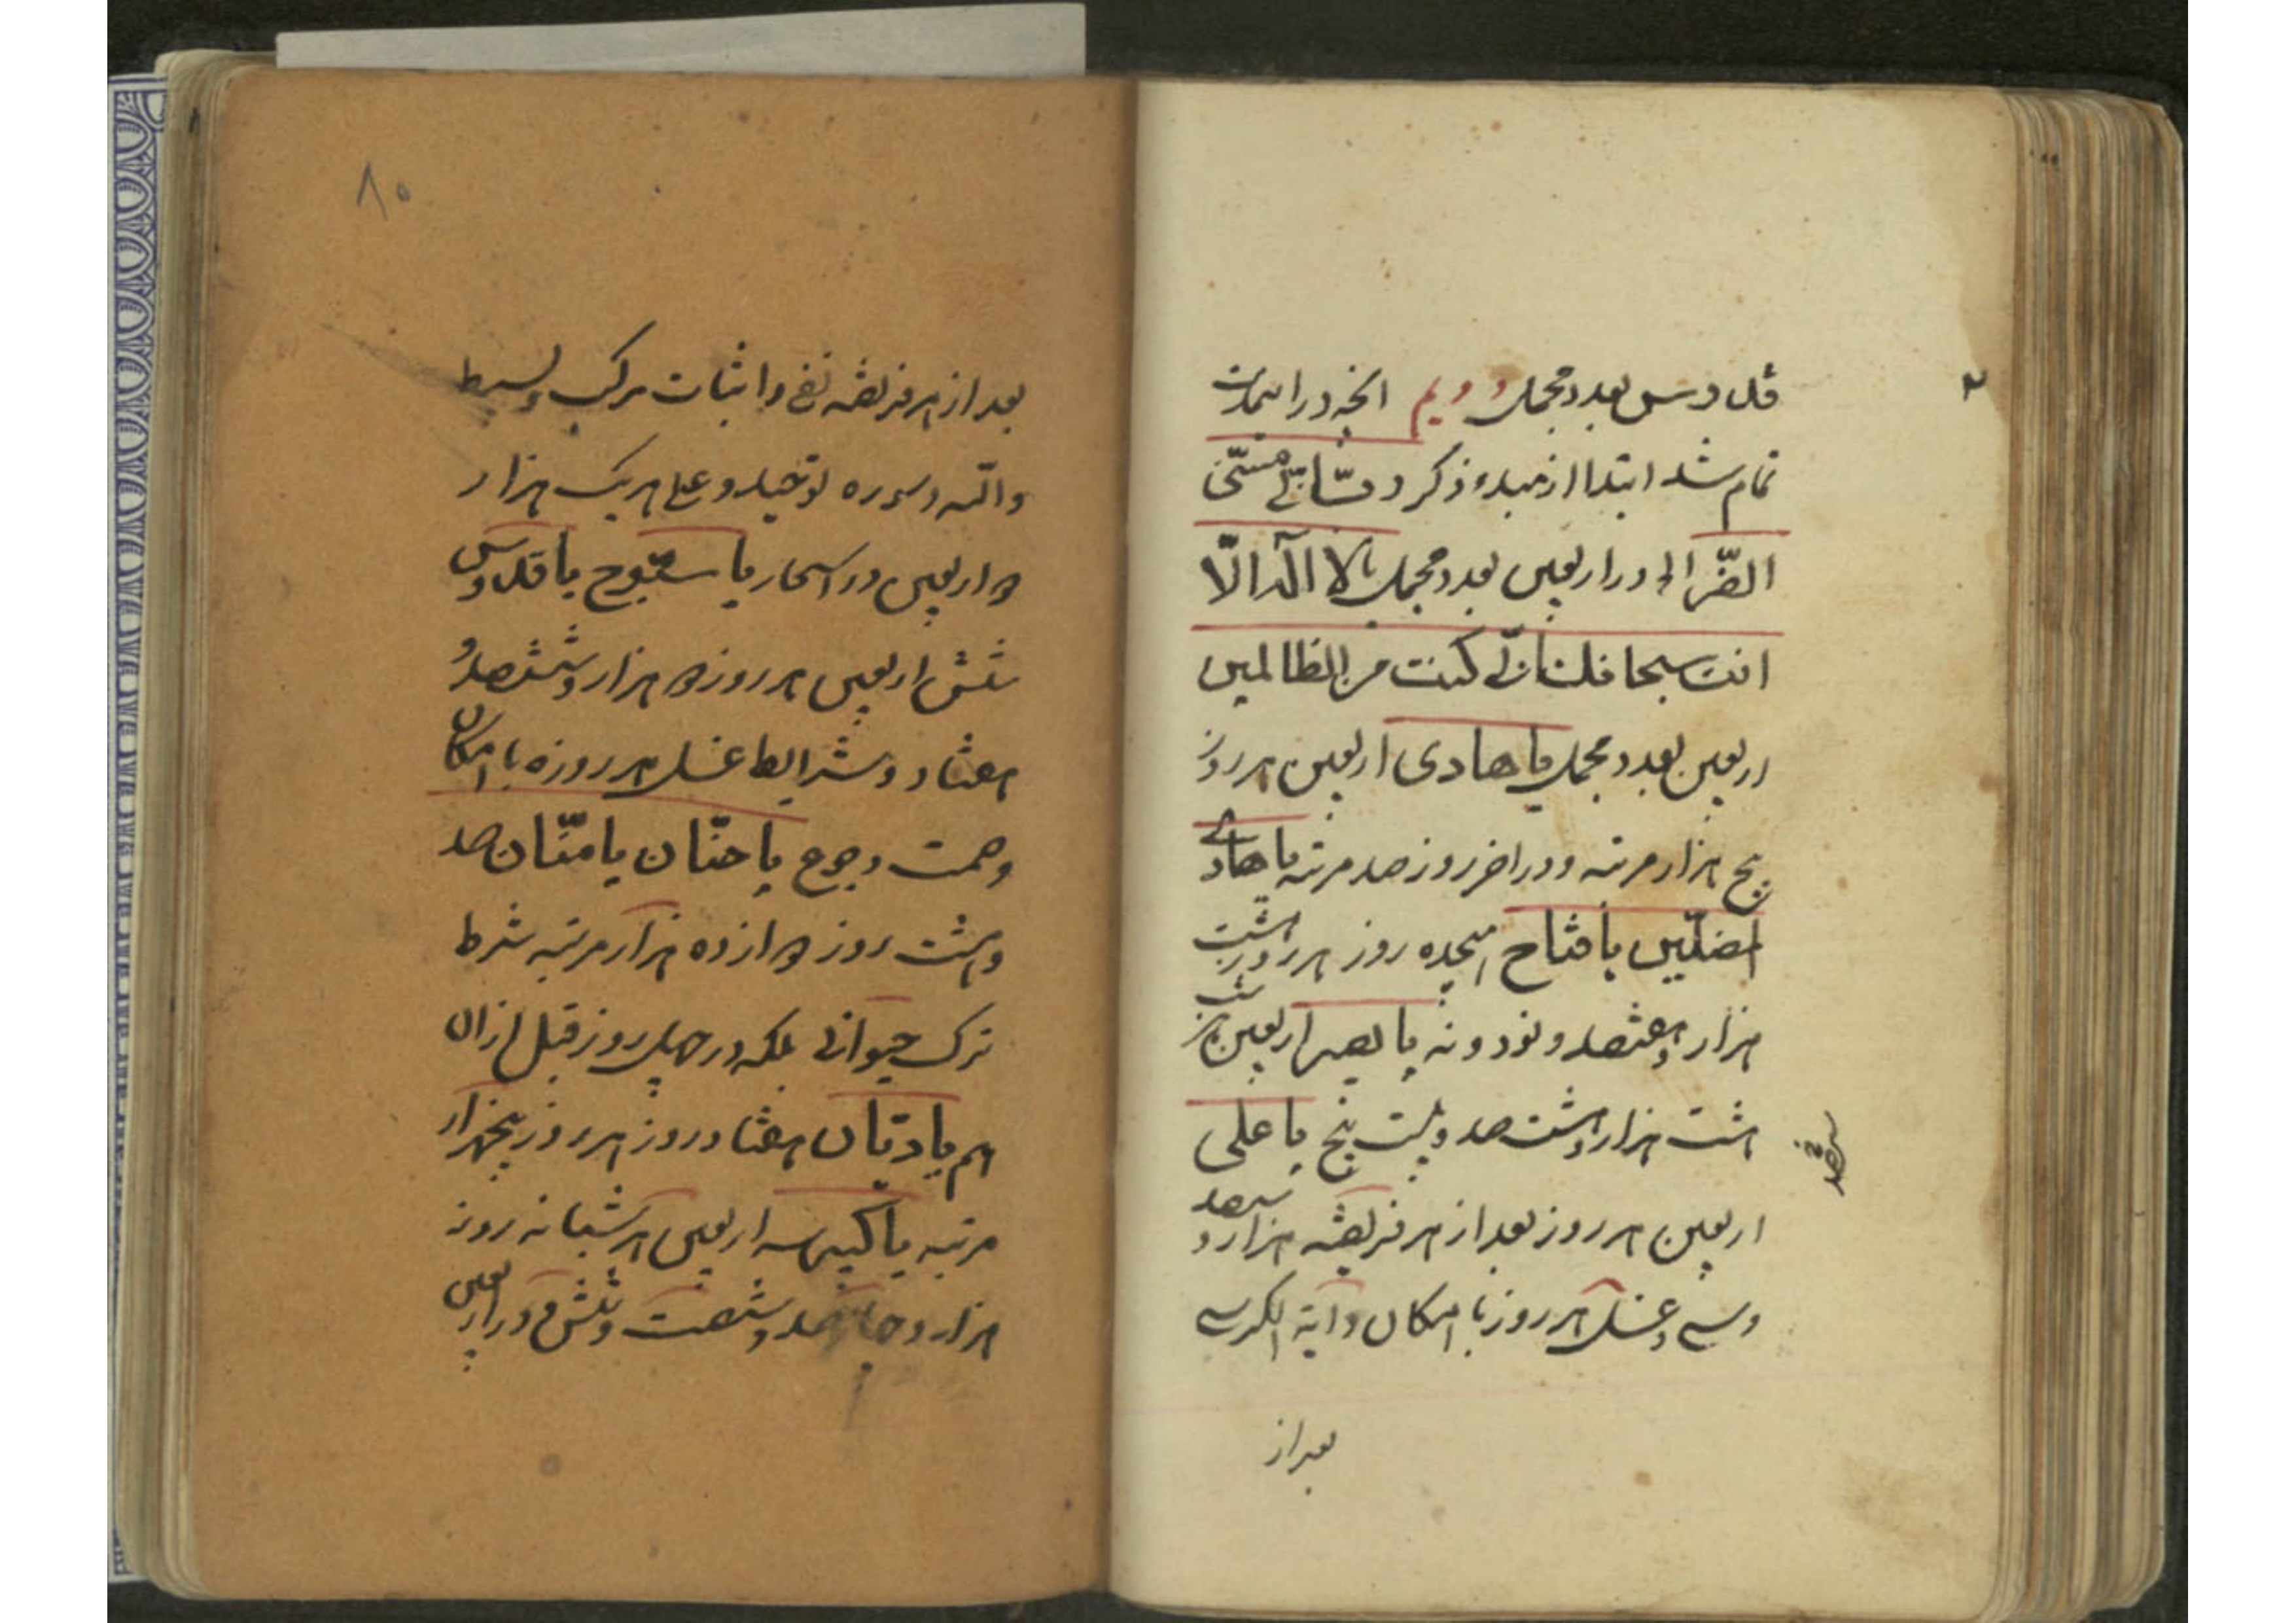 قدوس بعدد مجمل دویم انچه در اسمارت
تمام شد ابتدا از مبدء ذکر و مسّنی
الضّر الی در اربعین بعدد مجمل یا لا اله الّا
انت سبحانک انّی کنت من الظالمین
اربعین بعدد مجمل یا هادی اربعین هر روز
پنج هزار مرتبه و در اخر روز صد مرتبه یا هادی
المضلّین یا فتاح هیجده روز هر روز هشت
هزار و هفتصد و نود و نه یا بصیر اربعین هر شب
هشت هزار و هشت صد و بیست پنج یا علی
اربعین هر روز بعد از هر فریضه هزار و سیصد
و سی و غسل هر روز با امکان و آیة الکرسی
بعد از
۸۰
بعد از هر فریضه نفی و اثبات مرکب و بسیط
و الله و سوره توحید و علی هر یک هزار
در اربعین در اسحار یا سبّوح یا قدّوس
شش اربعین هر روز ده هزار و ششصد و
هفتاد و شرایط غسل هر روزه با امکان
و صمت و جوع یا حنّان یا منّان صد
و هشت روز دوازده هزار مرتبه شرط
ترک حیوانی بلکه در چهل روز قبل از ان
هم یا دیّان هفتاد روز هر روز پنجهزار
مرتبه یا کبیر سه اربعین هر شبانه روز
هزار و چهارصد و شصت و شش و در اربعین